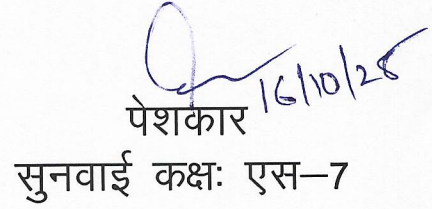 16/10/25
पेशकार
सुनवाई कक्षः एस–7